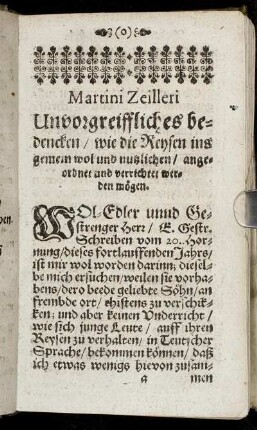 (0)
Martini Zeilleri
Unvorgreiffliches be-
dencken / wie die Reysen ins
gemein wol und nutzlichen / ange-
ordnet und verrichtet wer-
den mögen.
WOl-Edler unnd Ge-
strenger Herr / E. Gestr.
Schreiben vom 20. Hor-
nung / dieses fortlauffenden Jahrs /
ist mir wol worden darinn; diesel-
be mich ersuchen / weilen sie vorha-
bens / dero beede geliebte Söhn / an
frembde ort / ehistens zu verschik-
ken; und aber keinen Underricht /
wie sich junge Leute / auff ihren
Reysen zu verhalten / in Teutscher
Sprache / bekommen können / daß
ich etwas wenigs hievon zusam-
a men